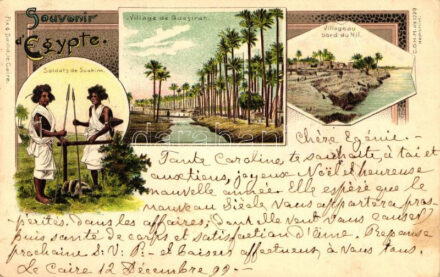 Souvenir
d'Egypte.
Village de Guezireh.
Village au
bord du Nil.
Soldats de Suakim.
darabanth
Chère Egénie. -
Tante Caroline te souhaite, à toi et
aux tiens, joyeux Noël et heureuse
nouvelle année. Elle espère que le
nouveau Siècle vous apportera pros-
pérités dans les affaires, dont elle veut vous causer
puis santé de corps et satisfaction d'âme. Réponse
prochaine S. V. P. - et baisers affectueux à vous tous.
Le Caire 12 Décembre 99 -